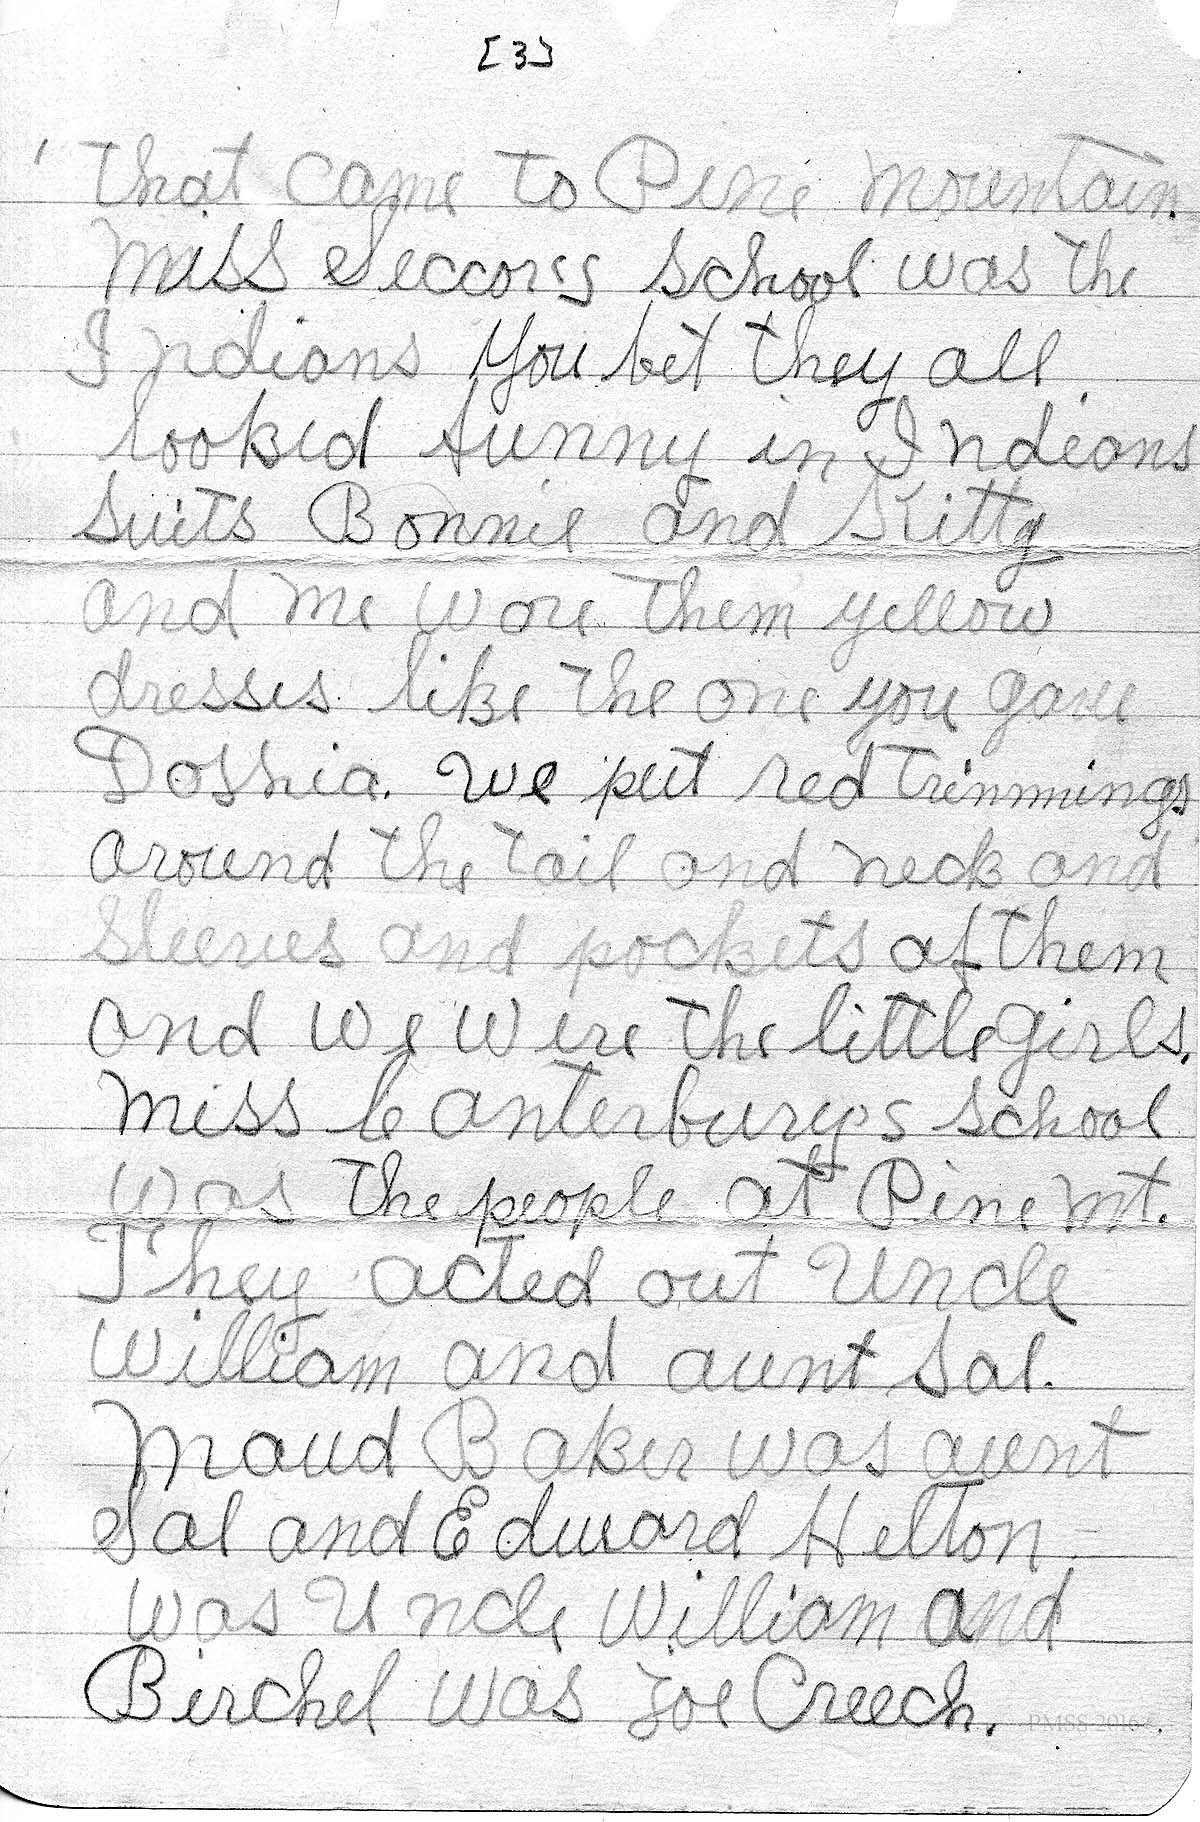 [3]
that came to Pine Mountain.
Miss Seccor's school was the
Indians you bet they all
looked funny in Indians
suits Bonnie and Kitty
and me wore them yellow
dresses like the one you gave
Doshia. We put red trimmings
around the tail and neck and
sleeves and pockets of them
and we were the little girls.
Miss Canterbury's school
was the people at Pine Mt.
They acted out Uncle
William and aunt Sal.
Maud Baker was aunt
Sal and Edward Helton
was Uncle William and
Birchel was Joe Creech.
PMSS 2016